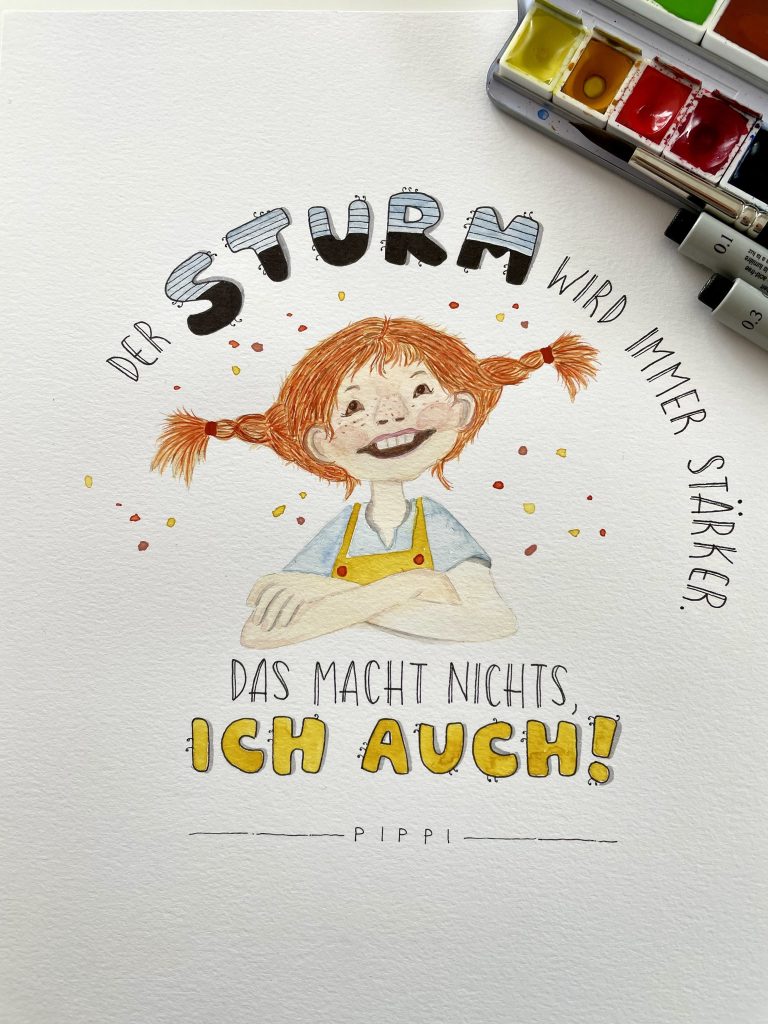 DER STURM WIRD IMMER STÄRKER.
DAS MACHT NICHTS,
ICH AUCH!
PIPPI
0.1
0.3